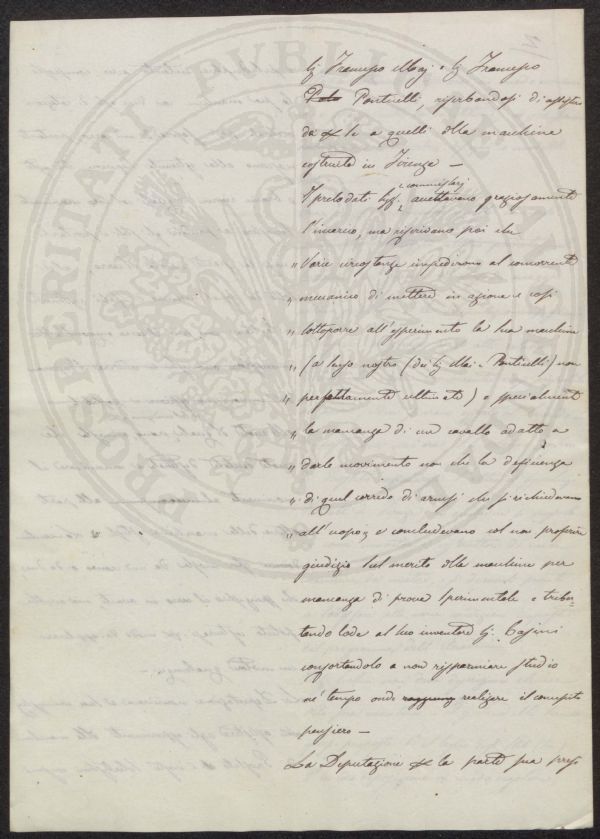 Sig. Francesco Maj e Sig. Francesco
Polo Ponticelli, riserbandosi di assistere
da per se a quelli della macchina
costruita in Firenze —
I prelodati Sigg. commissarj accettavano graziosamente
l'incarico, ma riferivano poi che
„ Varie circostanze impedirono al concorrente
„ meccanico di mettere in azione e così
„ sottoporre all'esperimento la sua macchina
„ (a senso nostro (dei Sig. Mai e Ponticelli) non
„ perfettamente ultimata) e specialmente
„ la mancanza di un cavallo adatto a
„ darle movimento non che la deficienza
„ di quel corredo di arnesi che si richiedevano
„ all'uopo; e concludevano col non proferire
giudizio sul merito della macchina per
mancanza di prove sperimentali e tribu-
tando lode al suo inventore Sig. Casini
confortandolo a non risparmiare studio
nè tempo onde realizzare il concepito
pensiero —
La Deputazione per la parte sua prese
PROSPERITATI PUBLICAE AUGENDAE